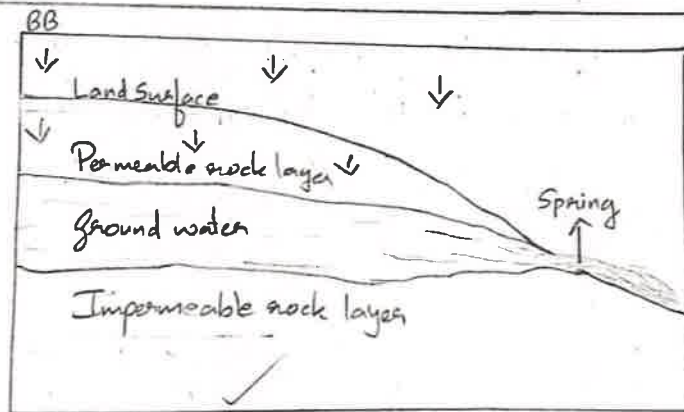 BB
Land Surface
Permeable rock layer
Spring
Ground water
Impermeable rock layer